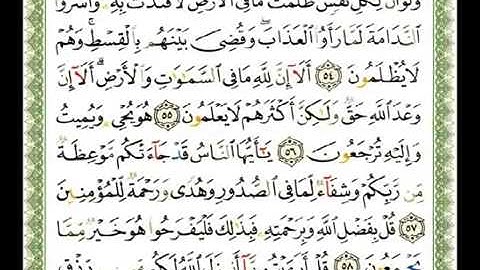 وَلَوْ أَنَّ لِكُلِّ نَفْسٍ ظَلَمَتْ مَا فِي الْأَرْضِ لَافْتَدَتْ بِهِ ۗ وَأَسَرُّوا
النَّدَامَةَ لَمَّا رَأَوُا الْعَذَابَ ۖ وَقُضِيَ بَيْنَهُم بِالْقِسْطِ ۚ وَهُمْ
لَا يُظْلَمُونَ ٥٤ أَلَا إِنَّ لِلَّهِ مَا فِي السَّمَاوَاتِ وَالْأَرْضِ ۗ أَلَا إِنَّ
وَعْدَ اللَّهِ حَقٌّ وَلَٰكِنَّ أَكْثَرَهُمْ لَا يَعْلَمُونَ ٥٥ هُوَ يُحْيِي وَيُمِيتُ
وَإِلَيْهِ تُرْجَعُونَ ٥٦ يَا أَيُّهَا النَّاسُ قَدْ جَاءَتْكُم مَّوْعِظَةٌ
مِّن رَّبِّكُمْ وَشِفَاءٌ لِّمَا فِي الصُّدُورِ وَهُدًى وَرَحْمَةٌ لِّلْمُؤْمِنِينَ
٥٧ قُلْ بِفَضْلِ اللَّهِ وَبِرَحْمَتِهِ فَبِذَٰلِكَ فَلْيَفْرَحُوا هُوَ خَيْرٌ مِّمَّا
يَجْمَعُونَ ٥٨ قُلْ أَرَأَيْتُم مَّا أَنزَلَ اللَّهُ لَكُم مِّن رِّزْقٍ